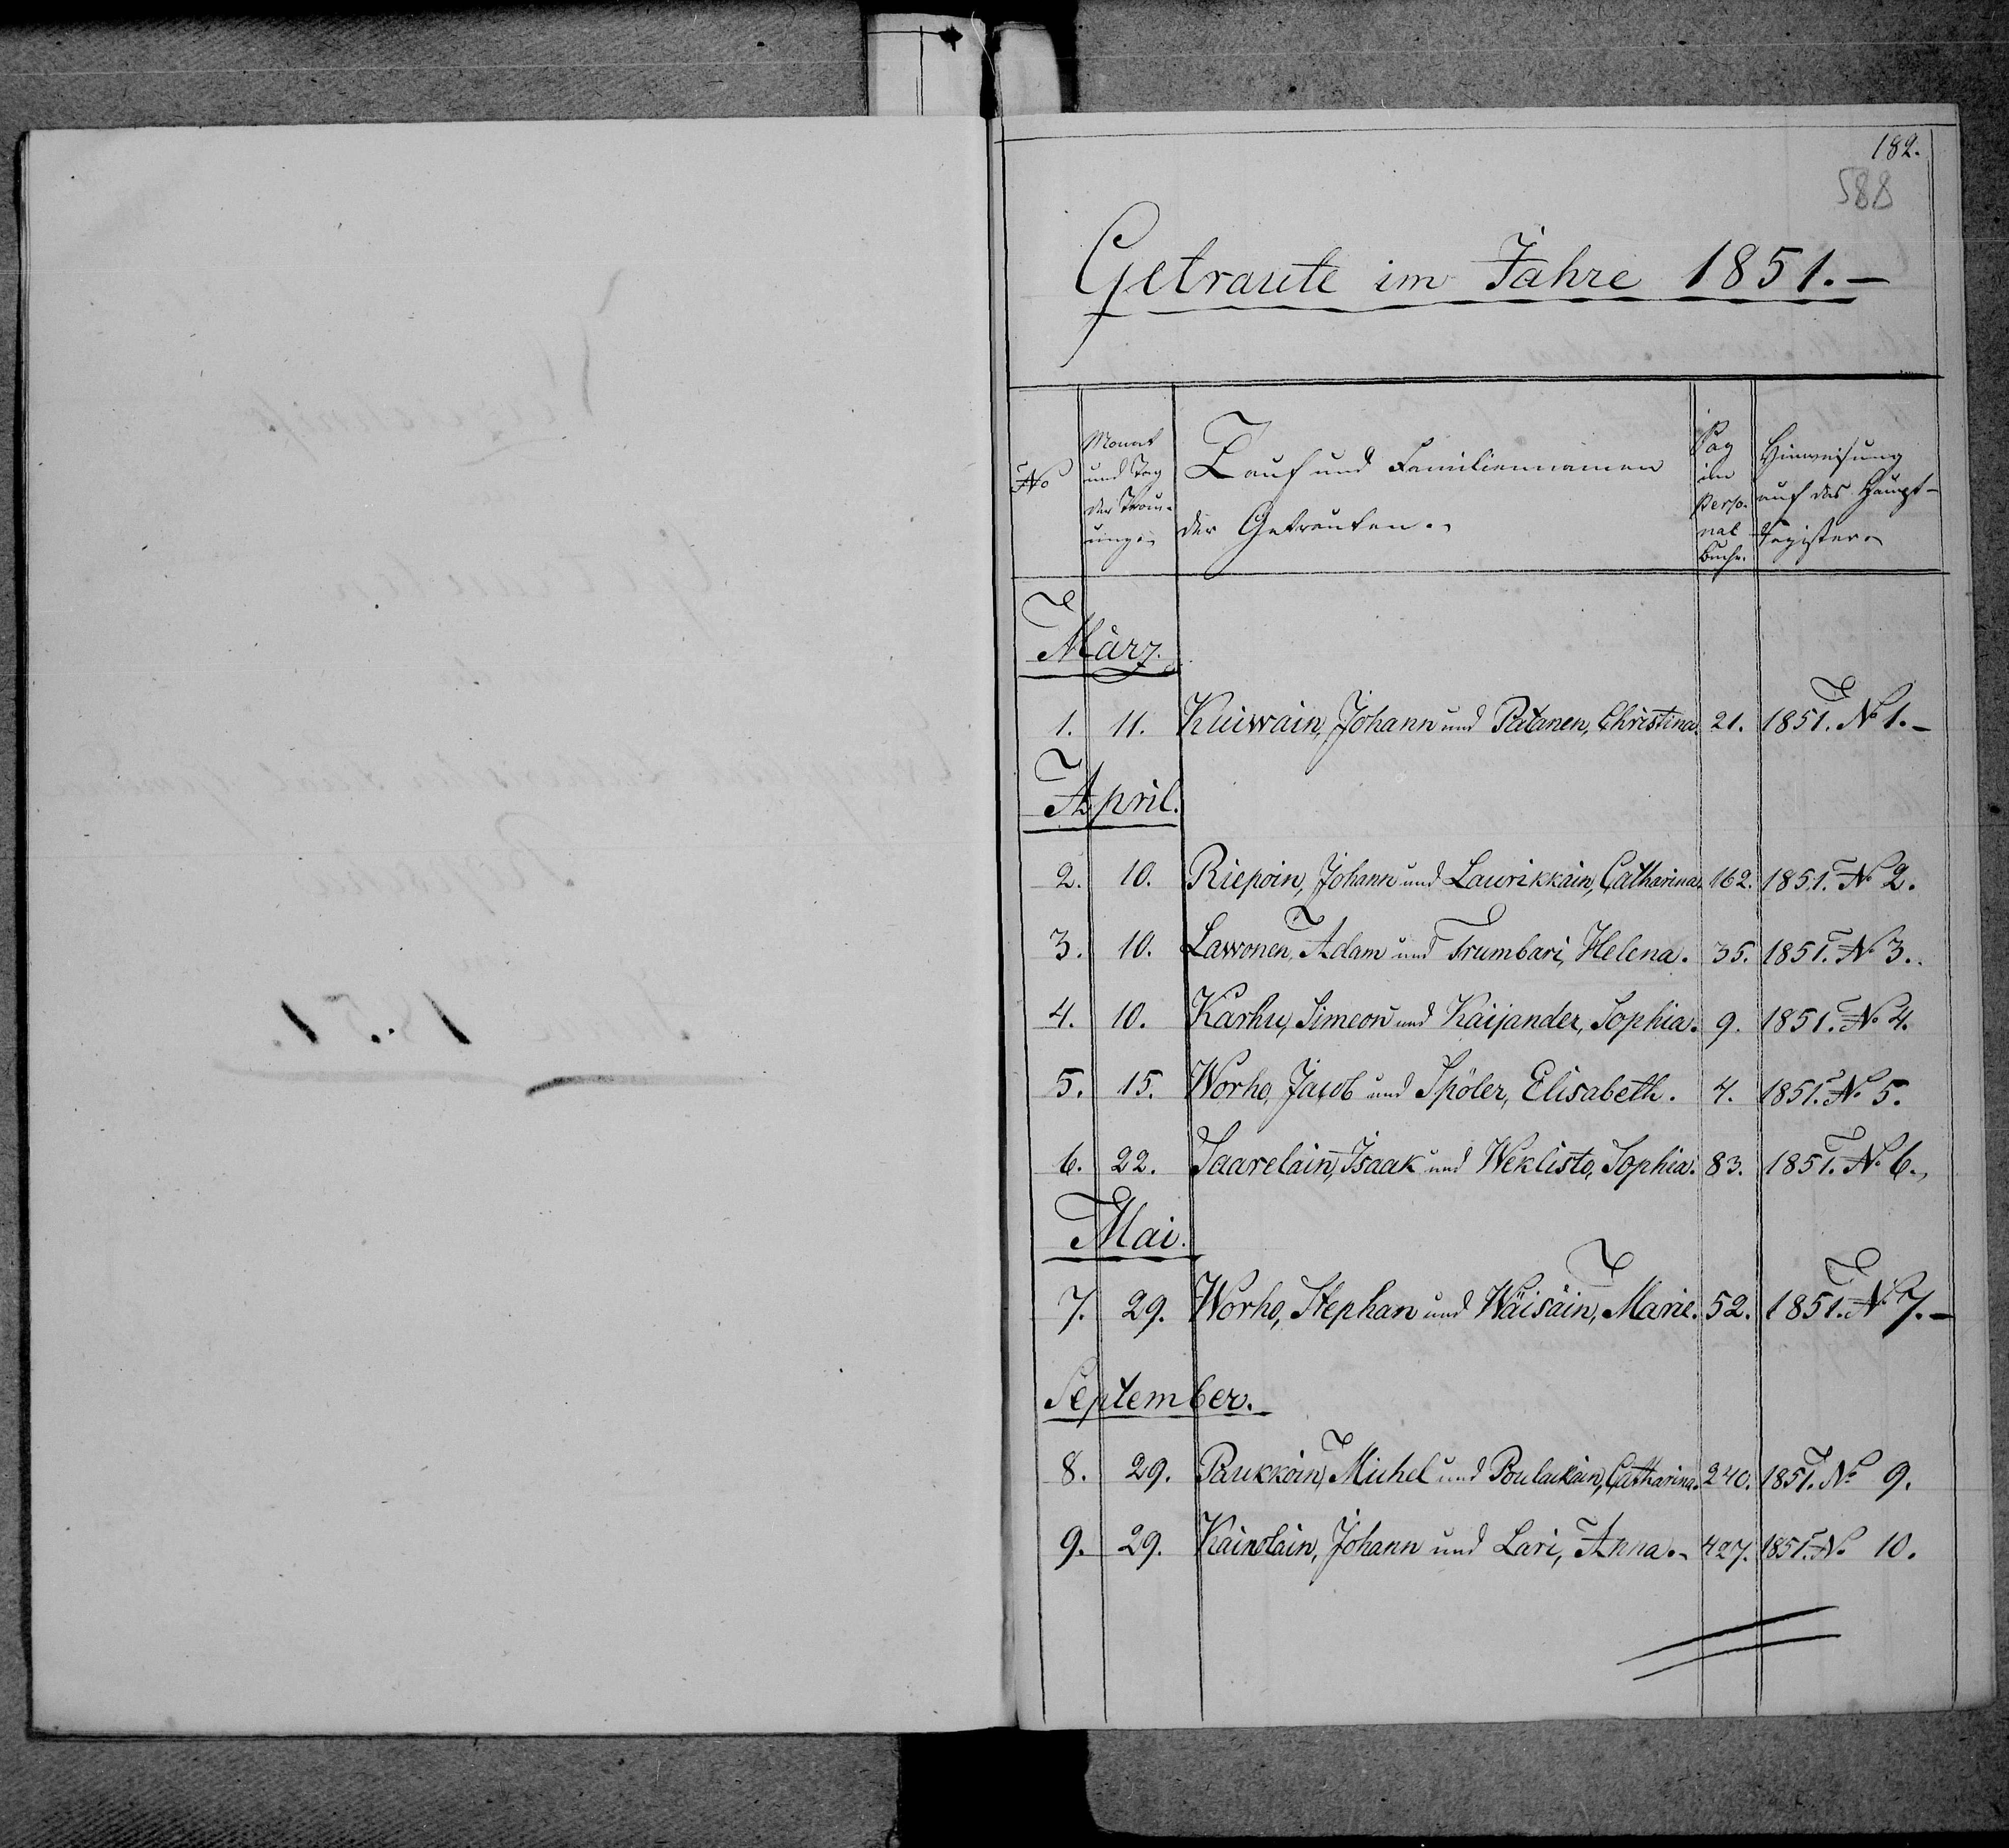 182.
588
Getraute im Jahre 1851.-
No
Monat
und Tag
der Trau-
ung.
Tauf und Familiennamen
der Getrauten.
Pag
im
Perso-
nal
Buche.
Hinweisung
auf das Haupt-
Register
März.
1. 11. Kuiwain, Johann und Patanen, Christina. 21. 1851. No 1.-
April.
2. 10. Riepoin, Johann und Laurikkain, Catharina. 162. 1851. No 2.
3. 10. Lawonen, Adam und Trumbari, Helena. 35. 1851. No 3.
4. 10. Karhu, Simeon und Kaijander, Sophia. 9. 1851. No 4.
5. 15. Worho, Jacob und Spöler, Elisabeth. 4. 1851. No 5.
6. 22. Saarelain, Isaak und Weklisto, Sophia. 83. 1851. No 6.
Mai.
7. 29. Worho, Stephan und Wäisäin, Marie. 52. 1851. No 7.-
September.
8. 29. Paukkoin, Michel und Poulakain, Catharina. 240. 1851. No 9.
9. 29. Kainolain, Johann und Lari, Anna. 427. 1851. No 10.